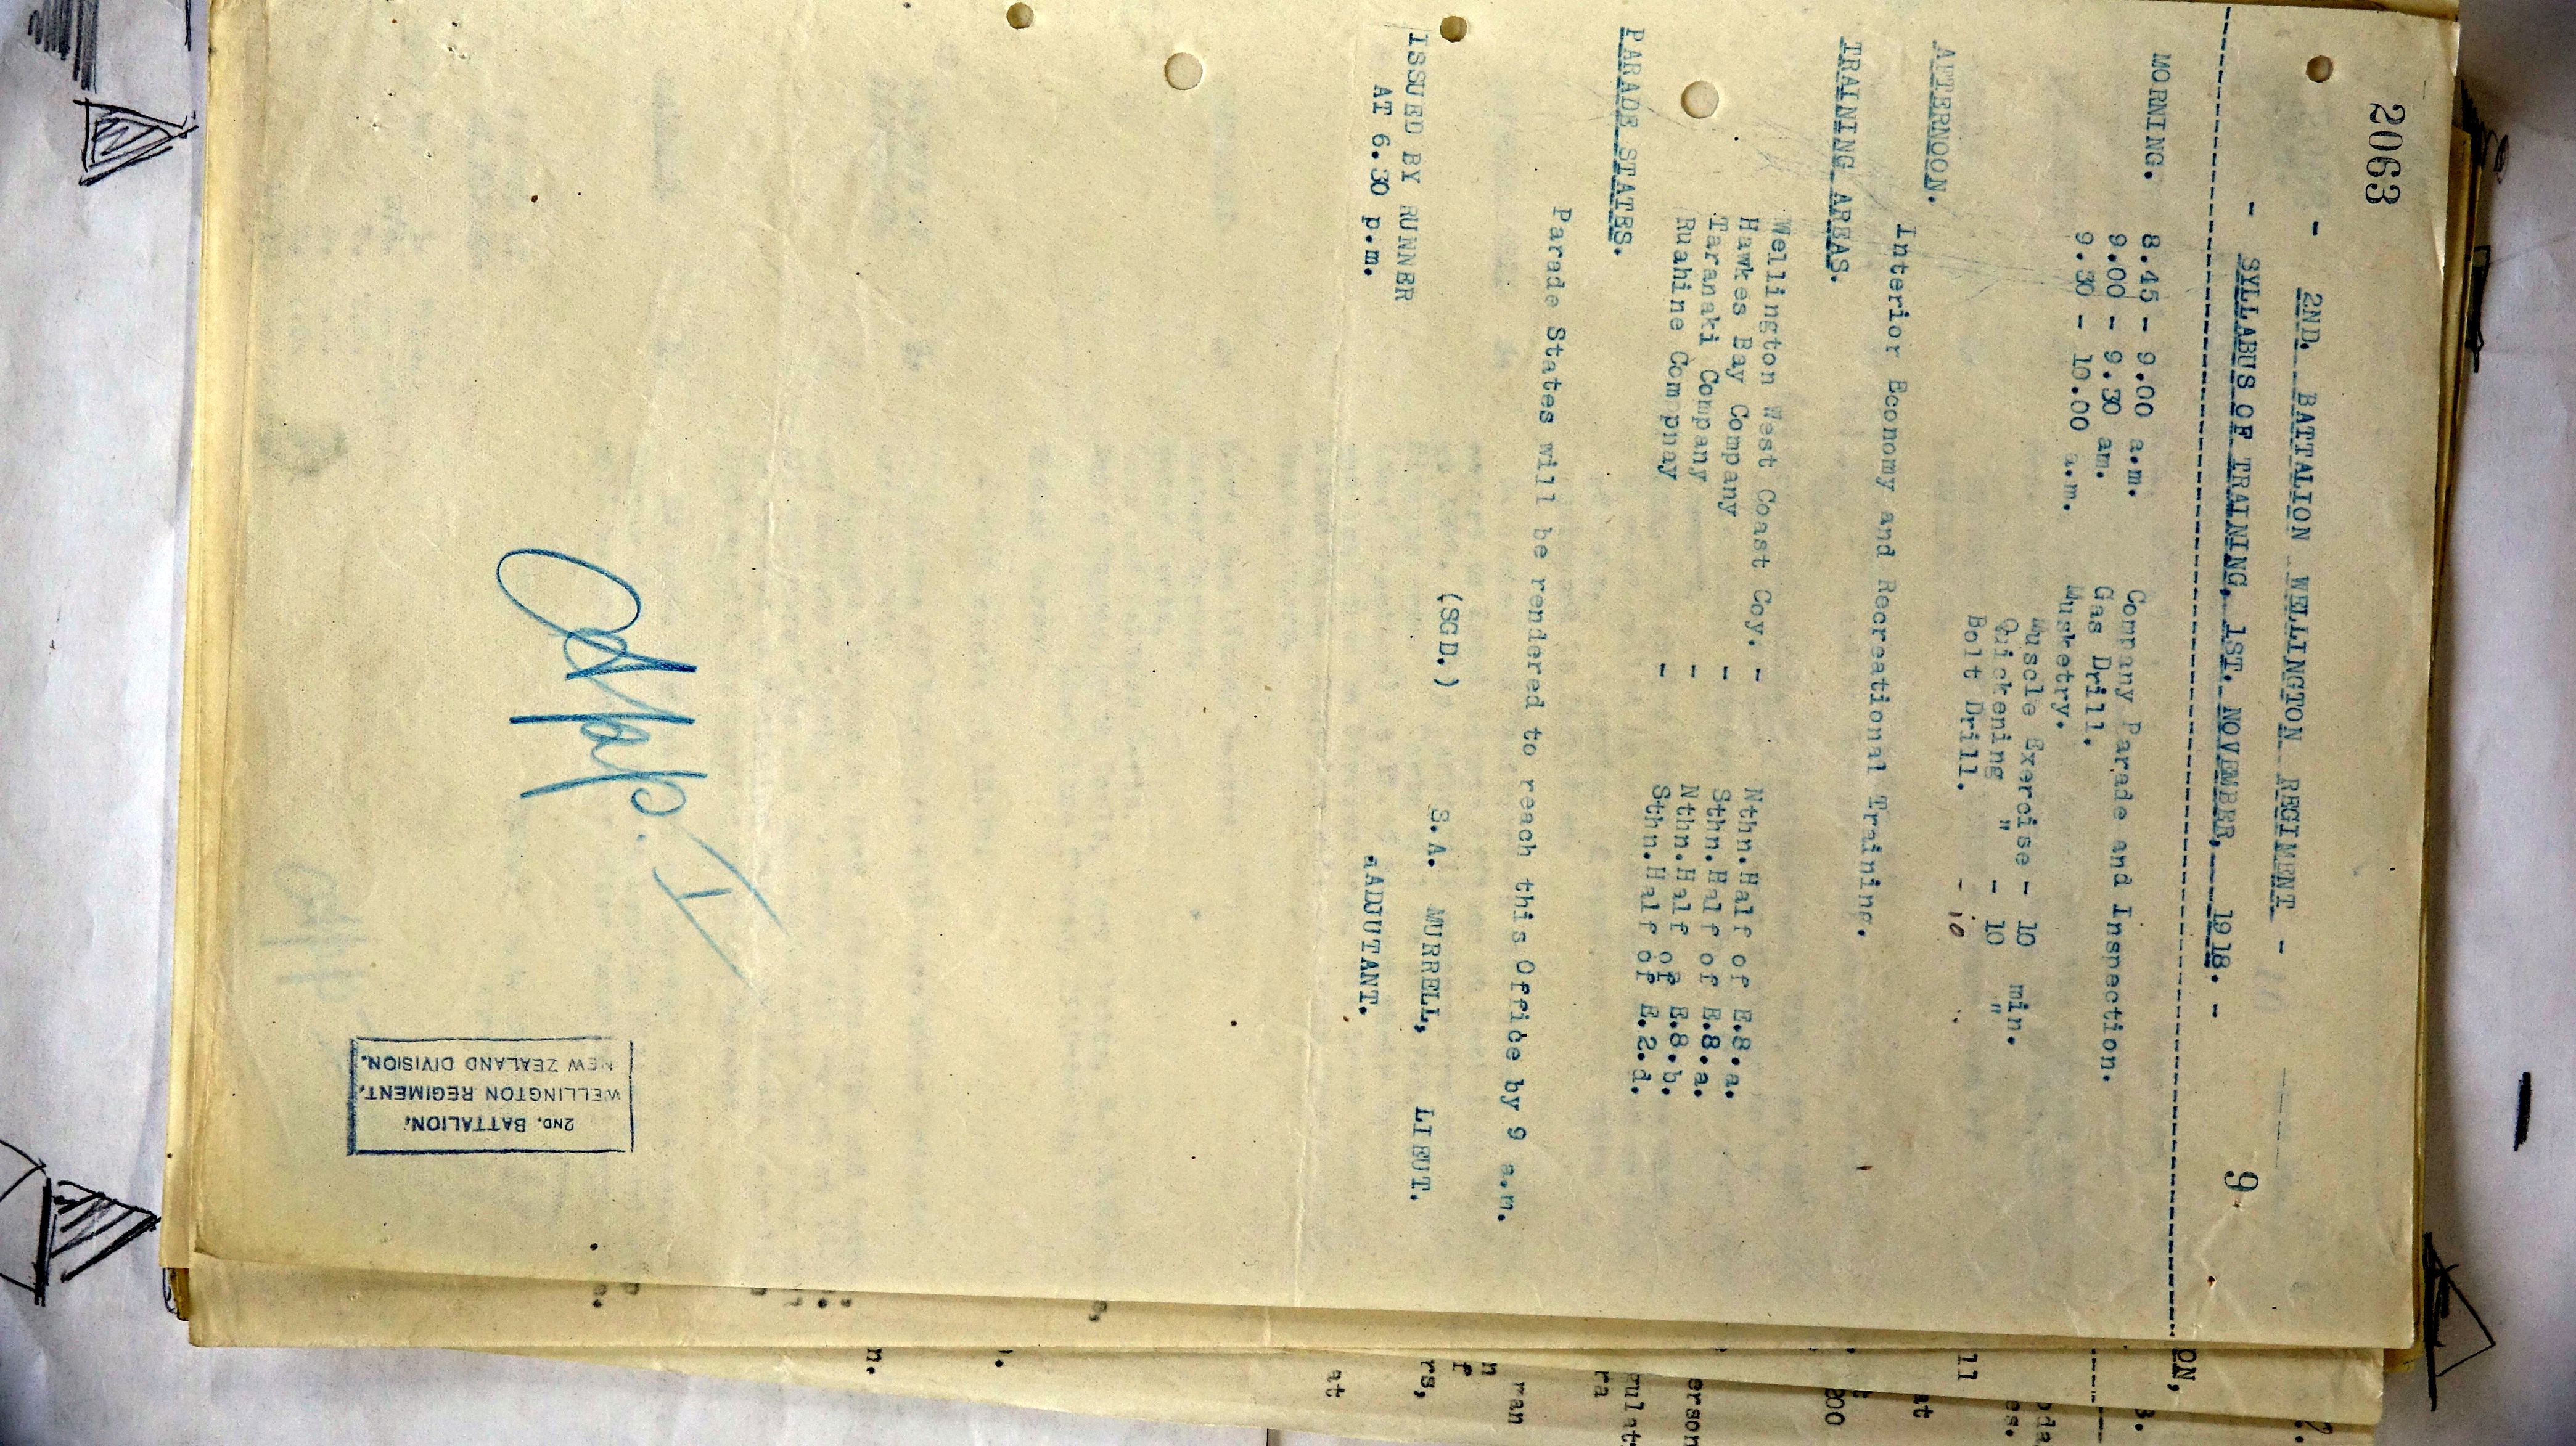 2063
- 2ND. BATTALION WELLINGTON REGIMENT -
- SYLLABUS OF TRAINING, 1ST. NOVEMBER, 1918. -
9
MORNING. 8.45 - 9.00 a.m. Company Parade and Inspection.
9.00 - 9.30 am. Gas Drill.
9.30 - 10.00 a.m. Musketry.
Muscle Exercise - 10 min.
Quickening " - 10 "
Bolt Drill. - 10
AFTERNOON.
Interior Economy and Recreational Training.
TRAINING AREAS.
Wellington West Coast Coy. - Nthn.Half of E.8.a.
Hawkes Bay Company - Sthn.Half of E.8.a.
Taranaki Company - Nthn.Half of E.8.b.
Ruahine Compnay - Sthn.Half of E.2.d.
PARADE STATES.
Parade States will be rendered to reach this Office by 9 a.m.
(SGD.) S.A. MURRELL, LIEUT.
ISSUED BY RUNNER
AT 6.30 p.m. aADJUTANT.
App. I
2ND. BATTALION,
WELLINGTON REGIMENT,
NEW ZEALAND DIVISION.
ON,
ll
at
200
erson
gulat
ra
ran
n
f
rs,
at
n.